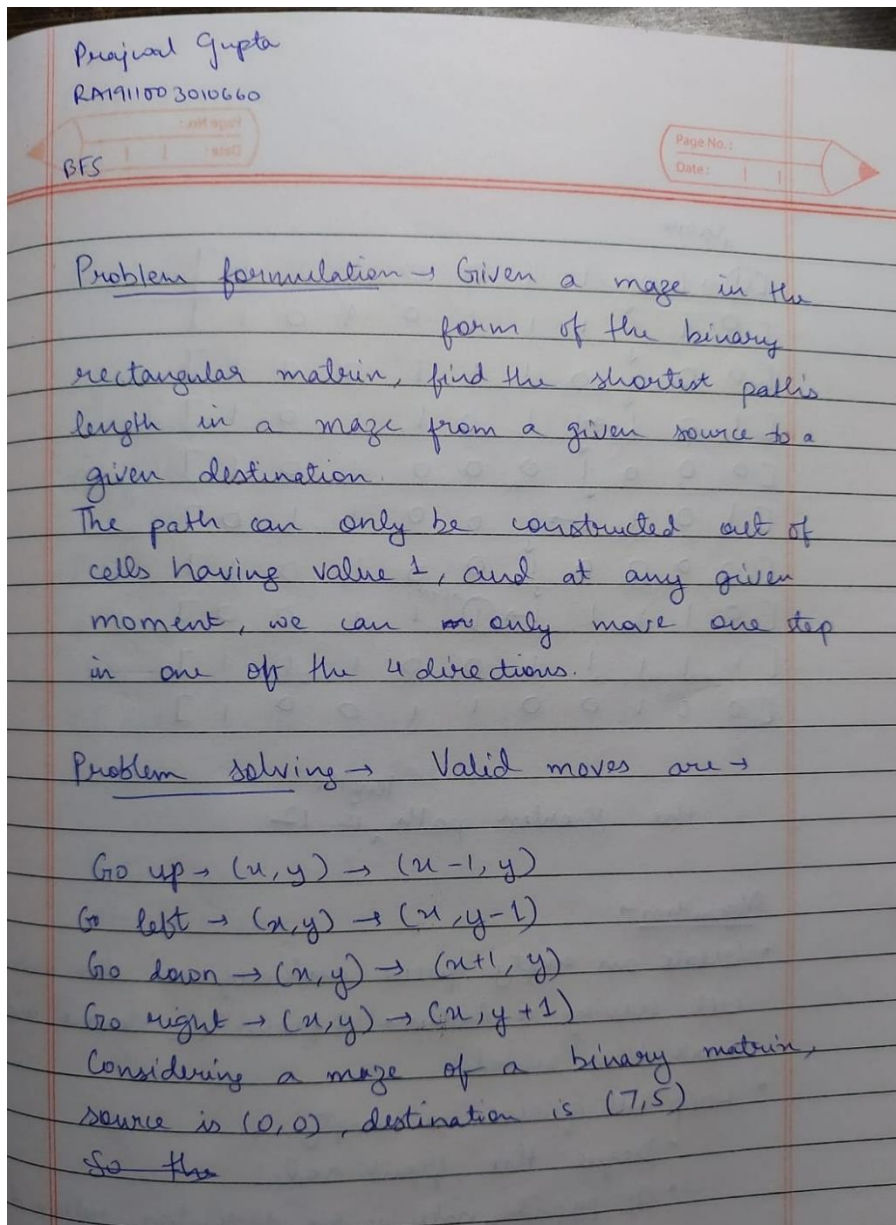 Prajwal Gupta
RA1911003010660
Page No.:
Date:
BFS
Problem formulation → Given a maze in the
form of the binary
rectangular matrix, find the shortest path's
length in a maze from a given source to a
given destination.
The path can only be constructed out of
cells having value 1, and at any given
moment, we can only move one step
in one of the 4 directions.
Problem solving → Valid moves are →
Go up → (x, y) → (x-1, y)
Go left → (x, y) → (x, y-1)
Go down → (x, y) → (x+1, y)
Go right → (x, y) → (x, y+1)
Considering a maze of a binary matrix,
source is (0,0), destination is (7,5)
So the